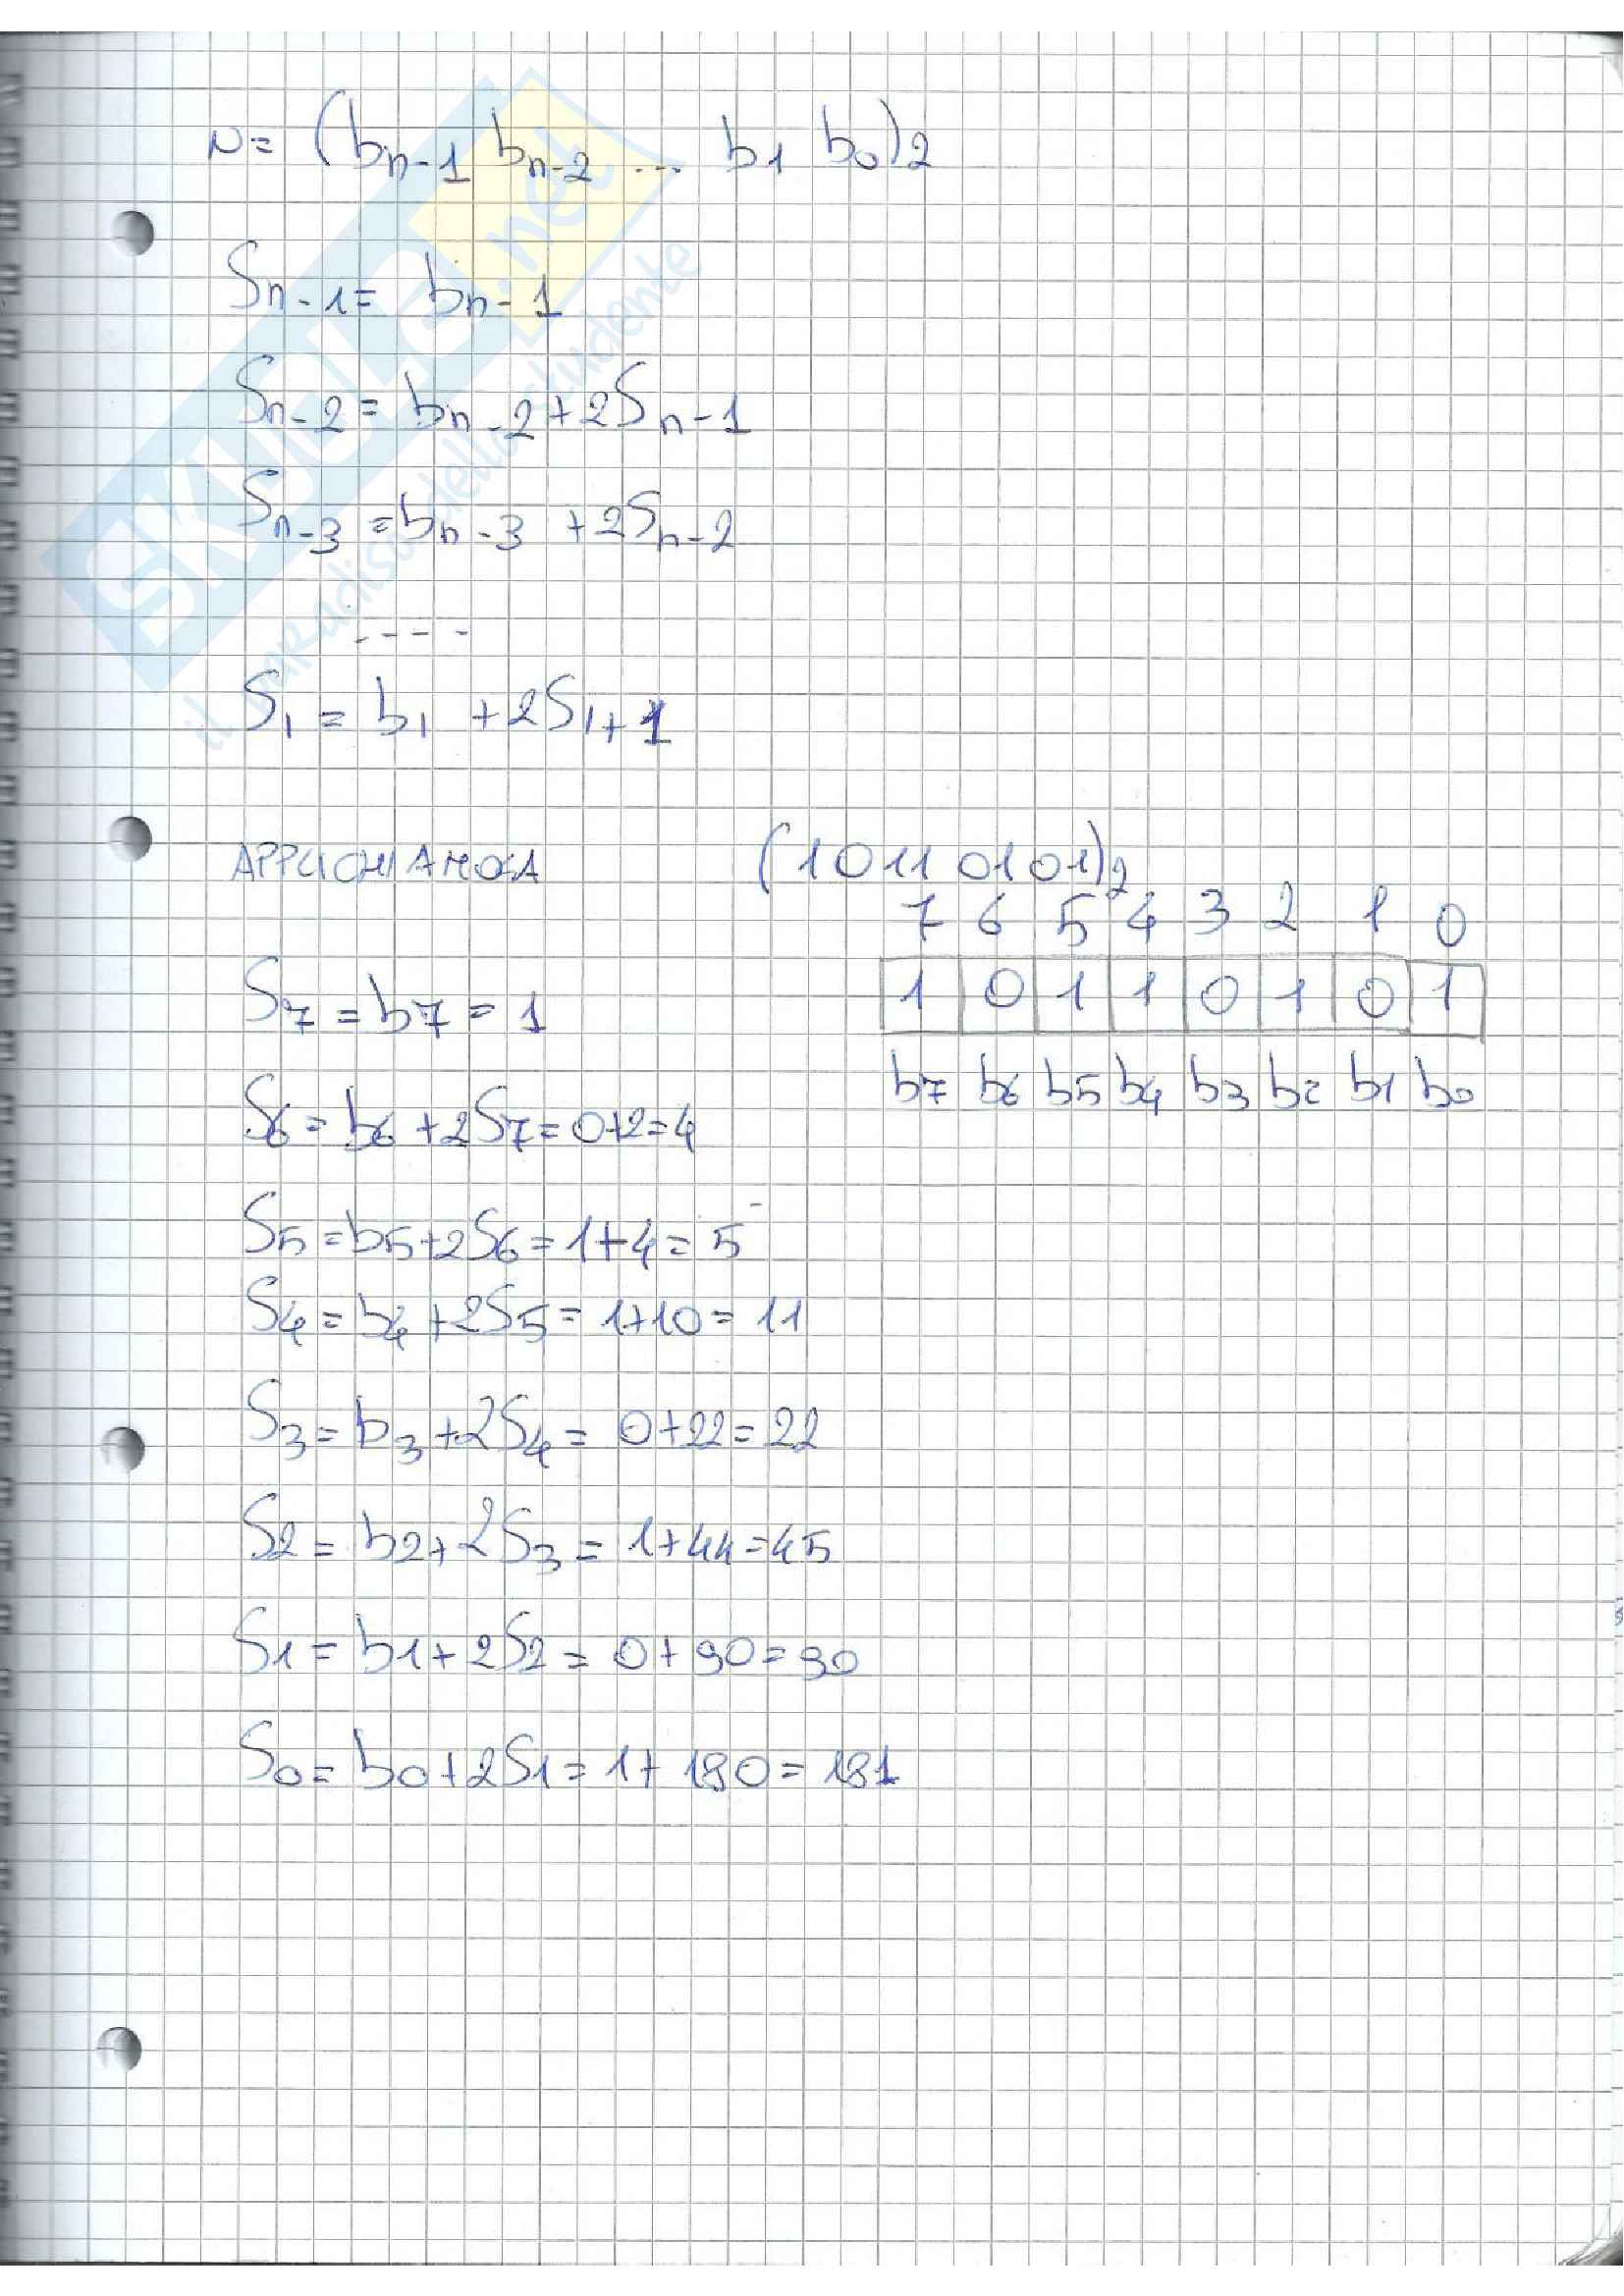 N = (bn-1 bn-2 ... b1 b0)2
Sn-1 = bn-1
Sn-2 = bn-2 + 2Sn-1
Sn-3 = bn-3 + 2Sn-2
----
S1 = b1 + 2S1+1
APPLICHIAMOLA (10110101)2
7 6 5 4 3 2 1 0
1 0 1 1 0 1 0 1
b7 b6 b5 b4 b3 b2 b1 b0
S7 = b7 = 1
S6 = b6 + 2S7 = 0+2 = 4
S5 = b5 + 2S6 = 1+4 = 5
S4 = b4 + 2S5 = 1+10 = 11
S3 = b3 + 2S4 = 0+22 = 22
S2 = b2 + 2S3 = 1+44 = 45
S1 = b1 + 2S2 = 0+90 = 90
S0 = b0 + 2S1 = 1+180 = 181
SKUOLA.net
il paradiso dello studente